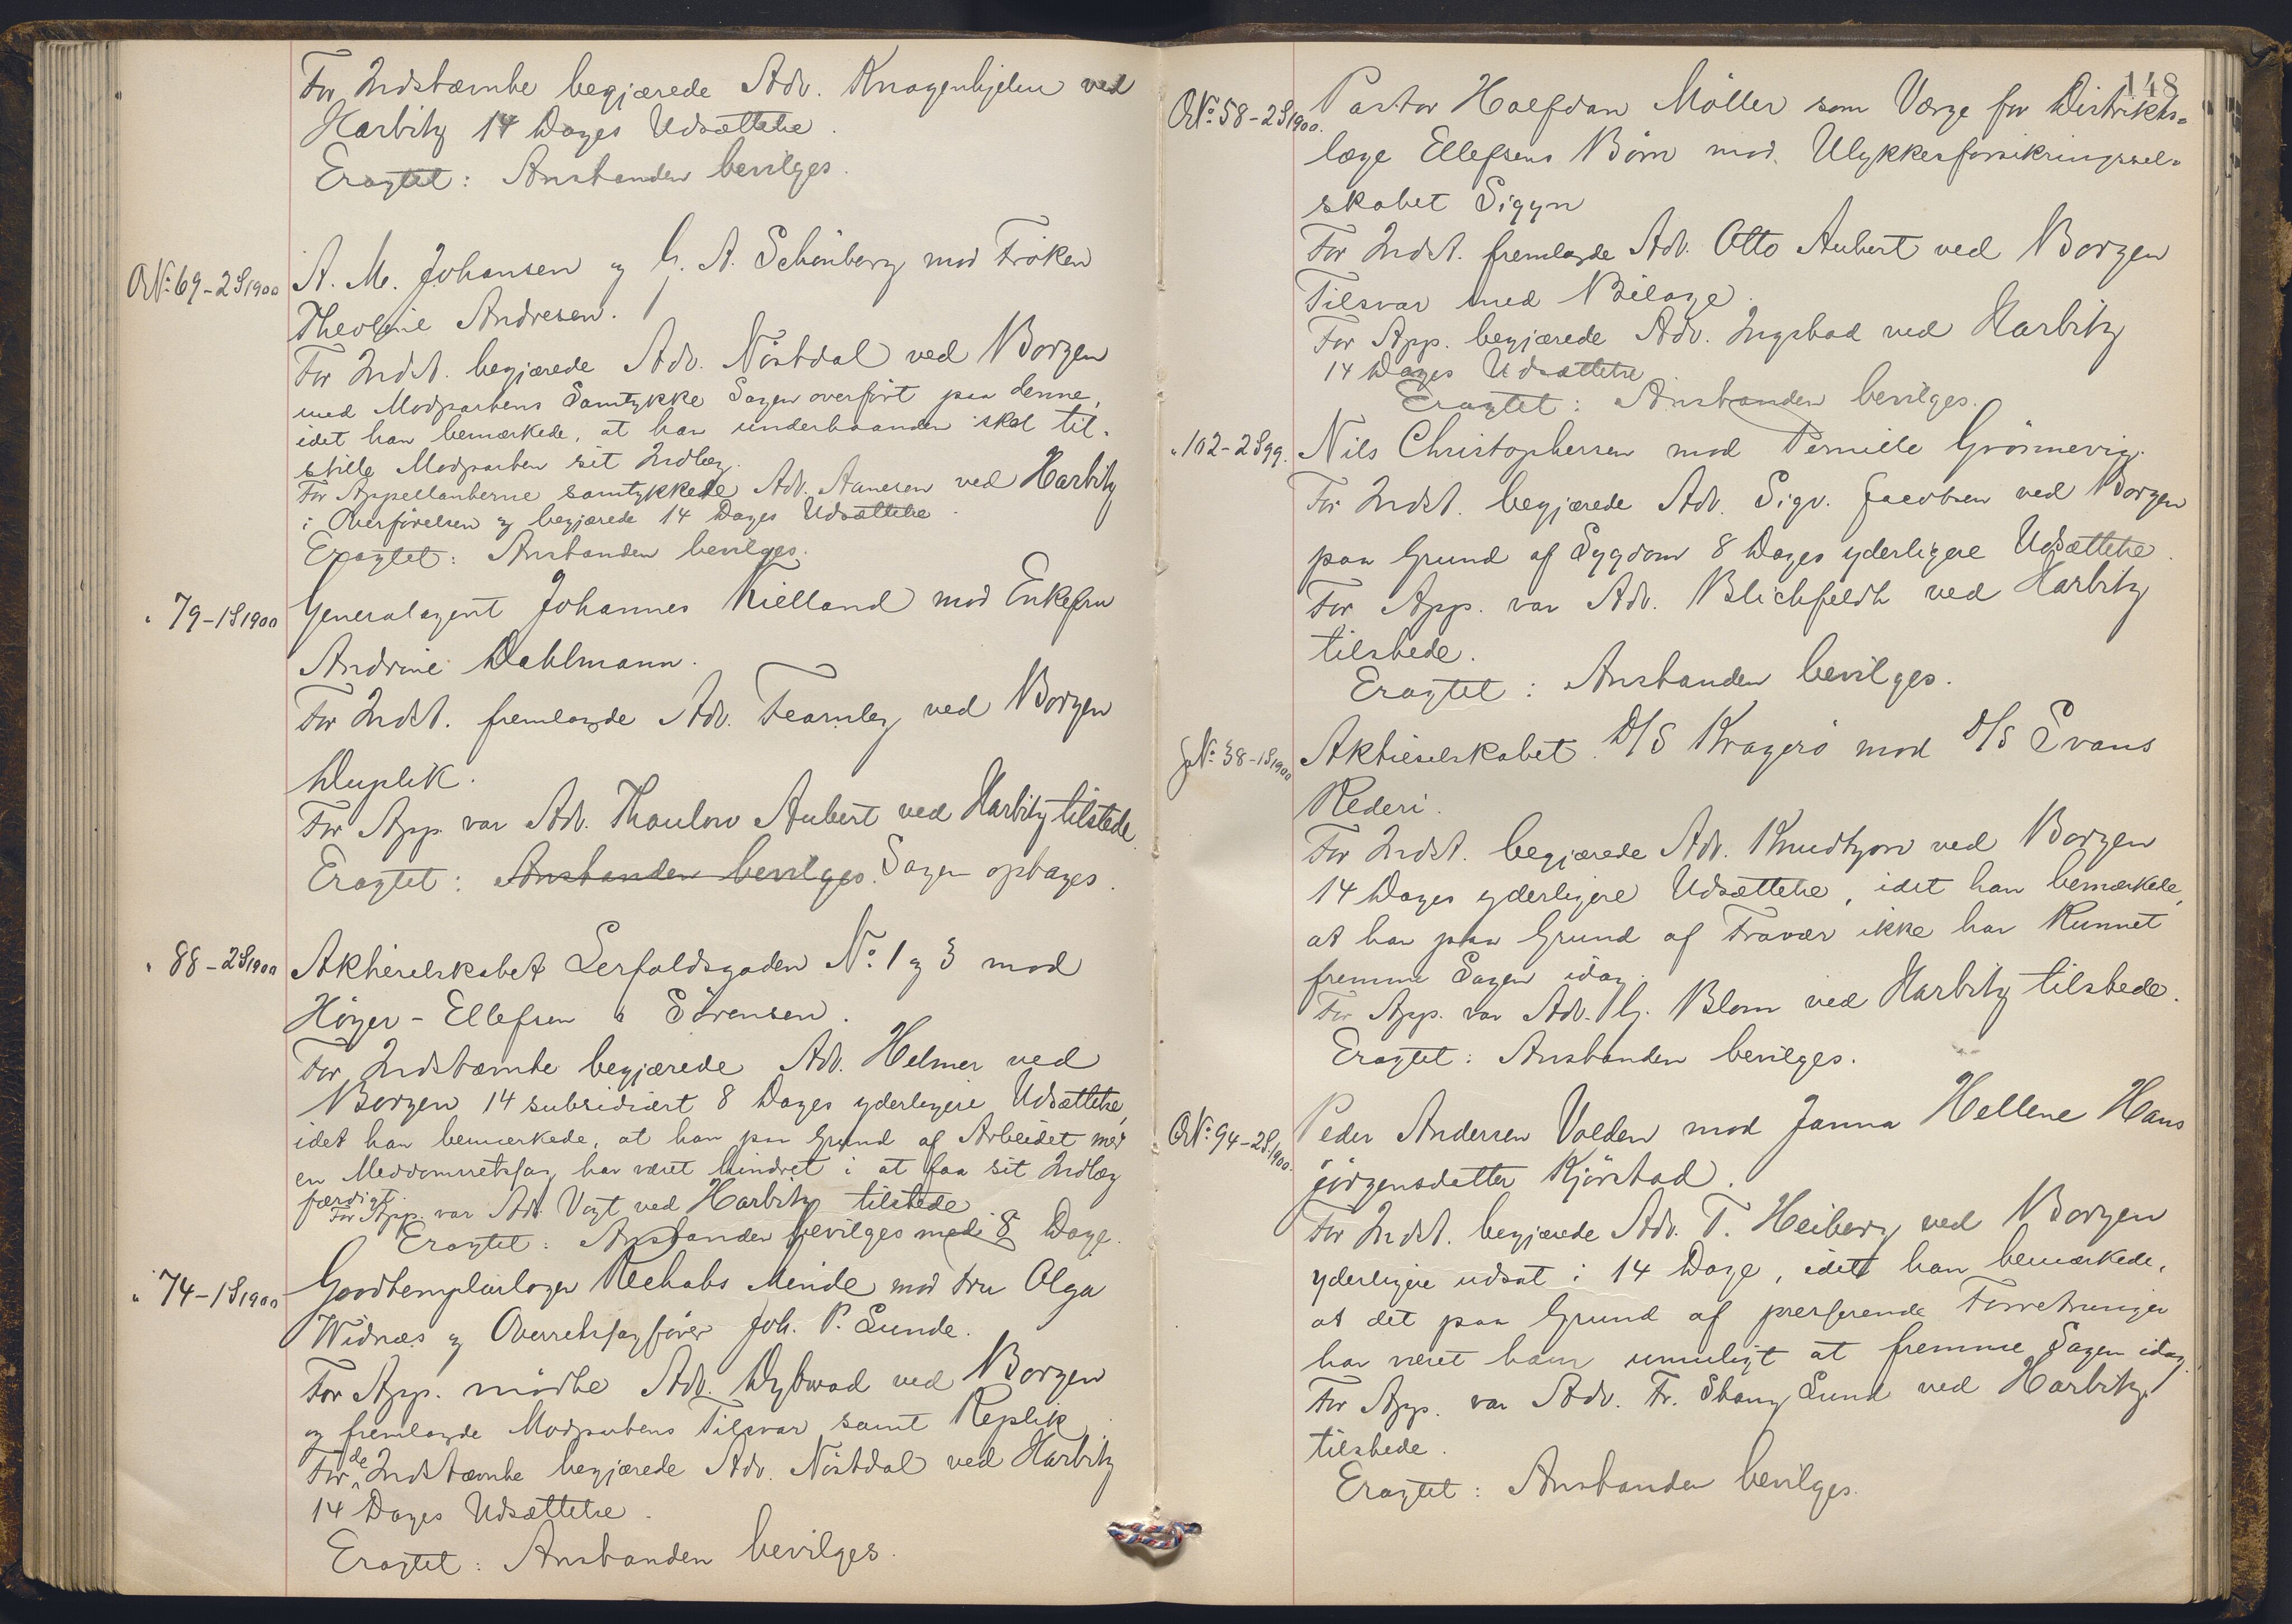 For Indstævnte begjærede Adv. Knagenhjelm ved
Harbitz 14 Dages Udsættelse.
Eragtet: Anstanden bevilges.
ONo. 69-2S1900
A. M. Johansen og G. A. Schönberg mod Frøken
Theoline Andresen.
For Indst. begjærede Adv. Nöstdal ved Borgen
med Modpartens Samtykke Sagen overført paa denne,
idet han bemærkede, at han underhaanden skal til-
stille Modparten sit Indlæg.
For Appellanterne samtykkede Adv. Aanesen ved Harbitz
i Overførelsen og begjærede 14 Dages Udsættelse.
Eragtet: Anstanden bevilges.
" 79-1S1900
Generalagent Johannes Kielland mod Enkefru
Andrine Dahlmann.
For Indst. fremlagde Adv. Fearnley ved Borgen
Duplik.
For App. var Adv. Thaulow Aubert ved Harbitz tilstede.
Eragtet: Anstanden bevilges. Sagen optages.
" 88-2S1900
Aktieselskabet Lerfaldsgaden No. 1 og 3 mod
Höyer-Ellefsen & Sörensen.
For Indstævnte begjærede Adv. Helmer ved
Borgen 14 subsidiært 8 Dages yderligere Udsættelse,
idet han bemærkede, at han paa Grund af Arbeidet med
en Meddomsretssag har været hindret i at faa sit Indlæg
færdigt.
For App. var Adv. Vogt ved Harbitz tilstede
Eragtet: Anstanden bevilges med 8 Dage.
" 74-1S1900
Goodtemplarlogen Rechabs Minde mod Fru Olga
Widnæs og Overretssagfører Joh. P. Lunde.
For App. mödte Adv. Dybwad ved Borgen
og fremlagde Modpartens Tilsvar samt Replik.
For de Indstævnte begjærede Adv. Nöstdal ved Harbitz
14 Dages Udsættelse.
Eragtet: Anstanden bevilges.
148
ONo. 58-2S1900.
Pastor Halfdan Möller som Værge for Distrikts-
læge Ellefsens Börn mod Ulykkesforsikringssel-
skabet Sigyn
For Indst. fremlagde Adv. Otto Aubert ved Borgen
Tilsvar med Bilage.
For App. begjærede Adv. Ingstad ved Harbitz
14 Dages Udsættelse
Eragtet: Anstanden bevilges.
" 102-2S99.
Nils Christophersen mod Pernille Grönnevig.
For Indst. begjærede Adv. Sigv. Jacobsen ved Borgen
paa Grund af Sygdom 8 Dages yderligere Udsættelse.
For App. var Adv. Blichfeldt ved Harbitz
tilstede.
Eragtet: Anstanden bevilges.
No. 38-1S1900
Aktieselskabet D/S Kragerö mod D/S Svans
Rederi.
For Indst. begjærede Adv. Knudtzon ved Borgen
14 Dages yderligere Udsættelse, idet han bemærkede,
at han paa Grund af Fravær ikke har kunnet
fremme Sagen idag.
For App. var Adv. G. Blom ved Harbitz tilstede.
Eragtet: Anstanden bevilges.
ONo. 94-2S1900.
Peder Andersen Volden mod Janna Hellene Hans
jörgensdatter Kjörstad.
For Indst. begjærede Adv. T. Heiberg ved Borgen
yderligere udsat i 14 Dage, idet han bemærkede,
at det paa Grund af presserende Forretninger
har været ham umuligt at fremme Sagen idag.
For App. var Adv. Fr. Stang Lund ved Harbitz
tilstede.
Eragtet: Anstanden bevilges.